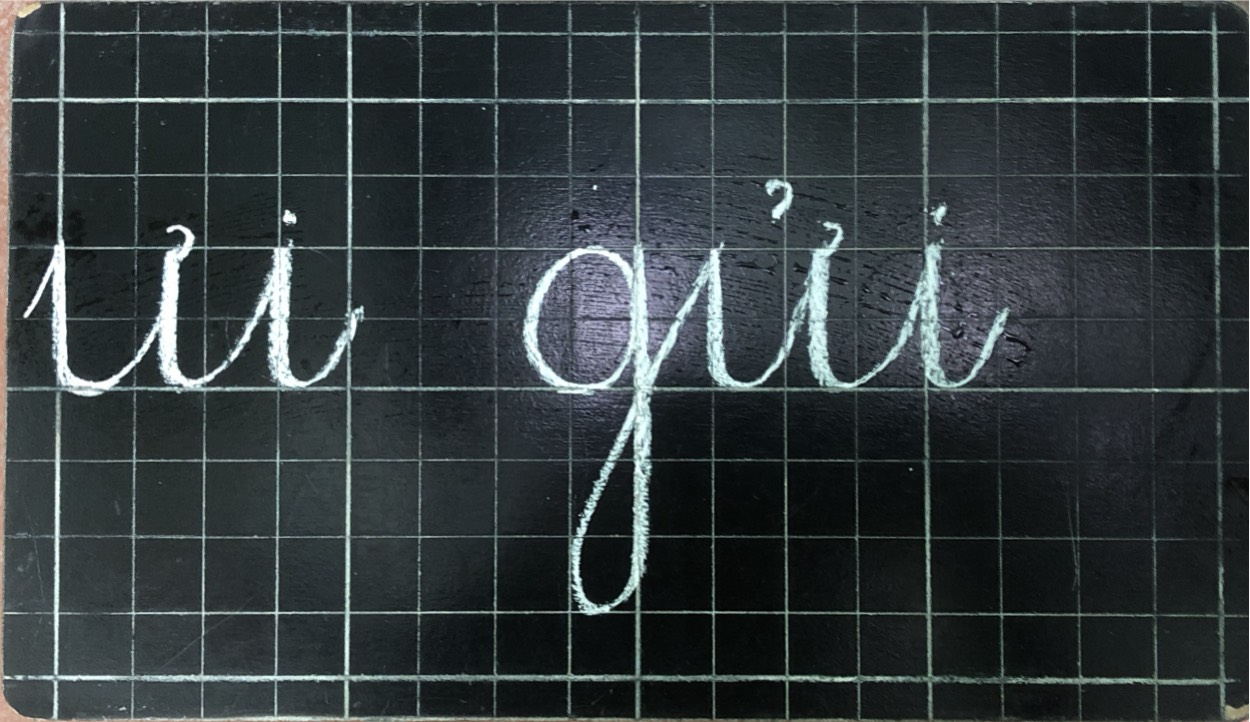 ưi gửi